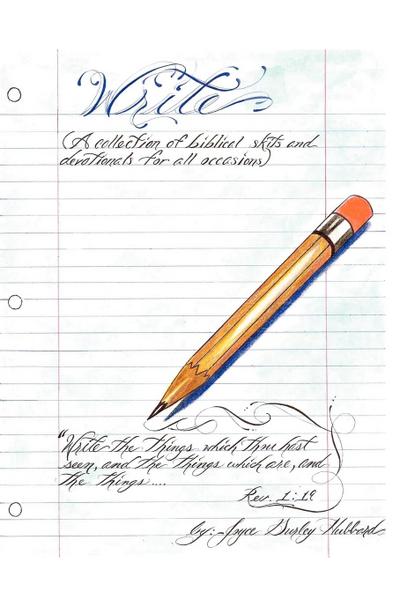 Write
(A collection of biblical skits and
devotionals for all occasions)
"Write the things which thou hast
seen, and the things which are, and
the things....
Rev. 1:19
by: Joyce Durley Hubbard